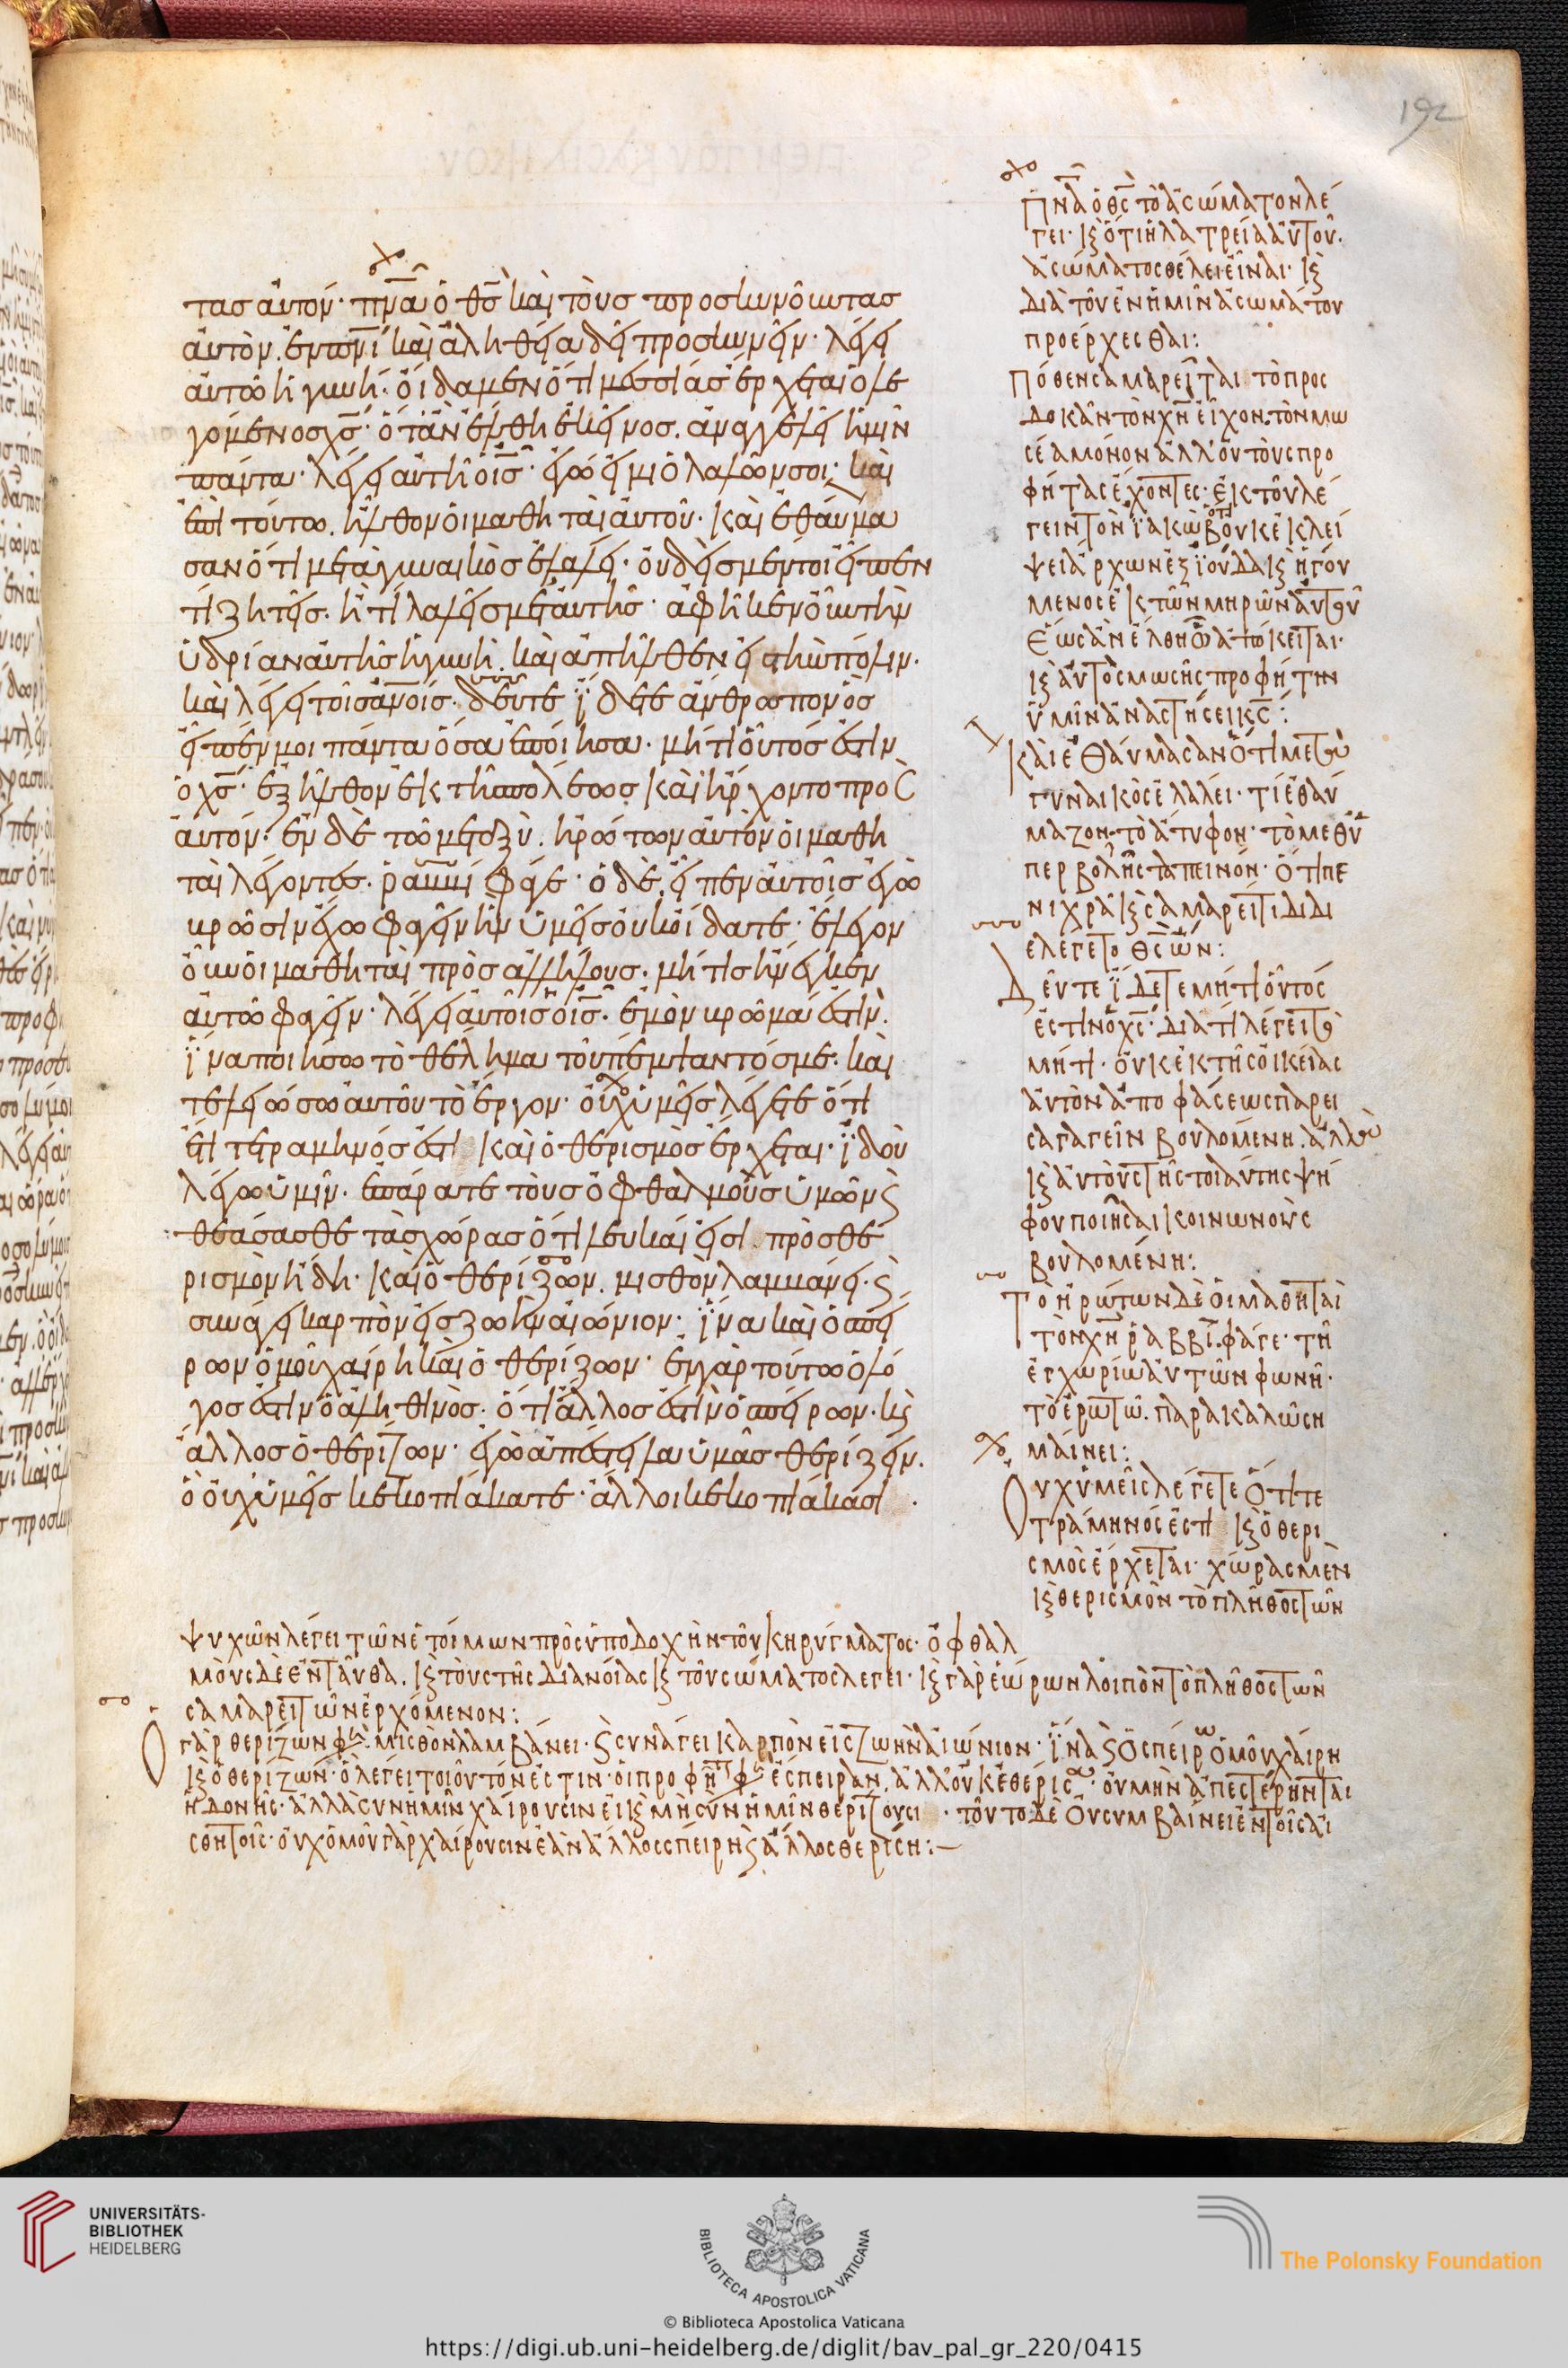 192
τας αὐτόν· πνᾱ ὁ θς̄ καὶ τοὺς προσκυνοῦντας
αὐτὸν. ἐν πνῑ καὶ ἀληθεία δεῖ προσκυνεῖν· λέγει
αὐτῶ ἡ γυνή· οἴδαμεν ὅτι μεσσίας ἔρχεται ὁ λε
γόμενος χς̄· ὅταν ἔλθη ἐκεῖνος. ἀναγγελεῖ ἡμῖν
πάντα· λέγει αὐτῆ ὁ ις̄· ἐγώ εἰμι ὁ λαλῶν σοι· καὶ
ἐπὶ τούτω. ἦλθον οἱ μαθηταὶ αὐτοῦ· καὶ ἐθαύμα
σαν ὅτι μετὰ γυναικὸς ἐλάλει· οὐδεὶς μέντοι εἶπεν
τί ζητεῖς. ἢ τί λαλεῖς μετ αὐτῆς· ἀφῆκεν οὖν τὴν
ὑδρίαν αὐτῆς ἡ γυνὴ. καὶ ἀπῆλθεν εἰς τὴν πόλιν.
καὶ λέγει τοῖς ἀνοις̄. δεῦτε ἴδετε ἄνθρωπον ὃς
εἶπέν μοι πάντα ὅσα ἐποίησα. μήτι οὗτός ἐστιν
ὁ χς̄· ἐξῆλθον ἐκ τῆς πόλεως καὶ ἤρχοντο προς
αὐτόν· ἐν δὲ τῶ μεταξὺ. ἠρώτων αὐτὸν οἱ μαθη
ταὶ λέγοντες. ῥαββί φάγε· ὁ δὲ. εἶπεν αὐτοῖς ἐγὼ
βρῶσιν ἔχω φαγεῖν ἣν ὑμεῖς οὐκ οἴδατε· ἔλεγον
οὖν οἱ μαθηταὶ πρὸς ἀλλήλους. μή τις ἤνεγκεν
αὐτῶ φαγεῖν· λέγει αὐτοῖς ὁ ις̄. ἐμὸν βρῶμά ἐστιν.
ἵνα ποιήσω τὸ θέλημα τοῦ πέμψαντός με· καὶ
τελειώσω αὐτοῦ τὸ ἔργον· οὐχ ὑμεῖς λέγετε ὅτι
ἔτι τετραμηνός ἐστι καὶ ὁ θερισμὸς ἔρχεται· ἰδοὺ
λέγω ὑμῖν. ἐπάρατε τοὺς ὀφθαλμοὺς ὑμῶν ϛ
θεάσασθε τὰς χώρας ὅτι λευκαί εἰσι. πρὸς θε
ρισμὸν ἤδη· καὶ ὁ θερίζων. μισθὸν λαμβάνει· ϛ
συνάγει καρπὸν εἰς ζωὴν αἰώνιον· ἵνα καὶ ὁ σπεί
ρων ὁμοῦ χαίρη καὶ ὁ θερίζων· ἐν γὰρ τούτω ὁ λό
γος ἐστὶν ὁ ἀληθινὸς· ὅτι ἄλλος ἐστὶν ὁ σπείρων. κς
ἄλλος ὁ θερίζων· ἐγὼ ἀπέστειλα ὑμᾶς θερίζειν.
ὃ οὐχ ὑμεῖς κεκοπιάκατε· ἄλλοι κεκοπιάκασι.
Πνᾱ ὁ θς̄ τὸ ἀσώματον λέ
γει· κς ὅτι ἡ λατρεία αὐτοῦ.
ἀσώματος θέλει εἶναι· κς
διὰ τοῦ ἐν ἡμῖν ἀσωμάτου
προέρχεσθαι:
Πόθεν σαμαρεῖται τὸ προσ
δοκᾶν τὸν χν̄ εἶχον. τὸν μω
σέα μόνον ἀλλ' οὐ τοὺς προ
φήτας ἔχοντες· ἐκ τοῦ λέ
γειν τὸν ἰακὼβ ὅτι οὐκ ἐκλεί
ψει ἄρχων ἐξ ἰούδα κς ἡγού
μενος ἐκ τῶν μηρῶν αὐτοῦ
ἕως ἂν ἔλθη ὧ ἀπόκειται·
κς αὐτὸς μωσῆς· προφήτην
ὑμῖν ἀναστήσει κς̄:
Καὶ ἐθαύμασαν ὅτι μετὰ
γυναικὸς ἐλάλει· τί ἐθαύ
μαζον· τὸ ἄτυφον· τὸ μεθ' ὑ
περβολῆς ταπεινόν· ὅτι πε
νιχρᾶ κς σαμαρείτιδι δι
ελέγετο θς̄ ὤν:
Δεῦτε ἴδετε μήτι οὗτός
ἐστιν ὁ χς̄· διατί λέγει τὸ
μήτι· οὐκ ἐκ τῆς οἰκείας
αὐτὸν ἀποφάσεως παρει
σαγαγεῖν βουλομένη. ἀλλὰ
κς αὐτοὺς τῆς τοιαύτης ψή
φου ποιῆσαι κοινωνοὺς
βουλομένη:
Τὸ ἠρώτων δὲ οἱ μαθηταὶ
τὸν χν̄ ῥαββῖ. φάγε· τῆ
ἐγχωρίω αὐτῶν φωνῆ·
τὸ ἐρωτῶ. παρακαλῶ ση
μαίνει:
Οὐχ ὑμεῖς λέγετε ὅτι τε
τράμηνός ἐστι κς ὁ θερι
σμὸς ἔρχεται· χώρας μὲν
κς θερισμὸν τὸ πλῆθος τῶν
ψυχῶν λέγει τῶν ἑτοίμων πρὸς ὑποδοχὴν τοῦ κηρύγματος· ὀφθαλ
μοὺς δὲ ἐνταῦθα. κς τοὺς τῆς διανοίας κς τοῦ σώματος λέγει· κς γὰρ ἑώρων λοιπὸν τὸ πλῆθος τῶν
σαμαρειτῶν ἐρχόμενον:
Ὁ γὰρ θερίζων φησὶ. μισθὸν λαμβάνει· ϛ συνάγει καρπὸν εἰς ζωὴν αἰώνιον· ἵνα ϛ ὁ σπείρω ὁμοῦ χαίρη
κς ὁ θερίζων· ὃ λέγει τοιοῦτόν ἐστιν· οἱ προφῆτ φησ ἔσπειραν. ἀλλ' οὐκ ἐθέρισα· οὐ μὴν ἀπεστέρηνται
ἡδονῆς· ἀλλὰ σὺν ἡμῖν χαίρουσιν εἰ κς μὴ σὺν ἡμῖν θερίζουσι· τοῦτο δὲ οὐ συμβαίνει ἐν τοῖς αἰ
σθητοῖς· οὐχ ὁμοῦ γὰρ χαίρουσιν ἐὰν ἄλλος σπείρη ϛ ἄλλος θερίση:—
UNIVERSITÄTS-
BIBLIOTHEK
HEIDELBERG
BIBLIOTECA APOSTOLICA VATICANA
The Polonsky Foundation
© Biblioteca Apostolica Vaticana
https://digi.ub.uni-heidelberg.de/diglit/bav_pal_gr_220/0415